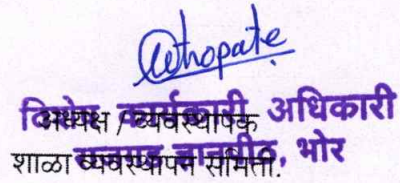 Othopate
विशेष कार्यकारी अधिकारी
अध्यक्ष / व्यवस्थापक
राजगड ज्ञानपीठ, भोर
शाळा व्यवस्थापन समिती.